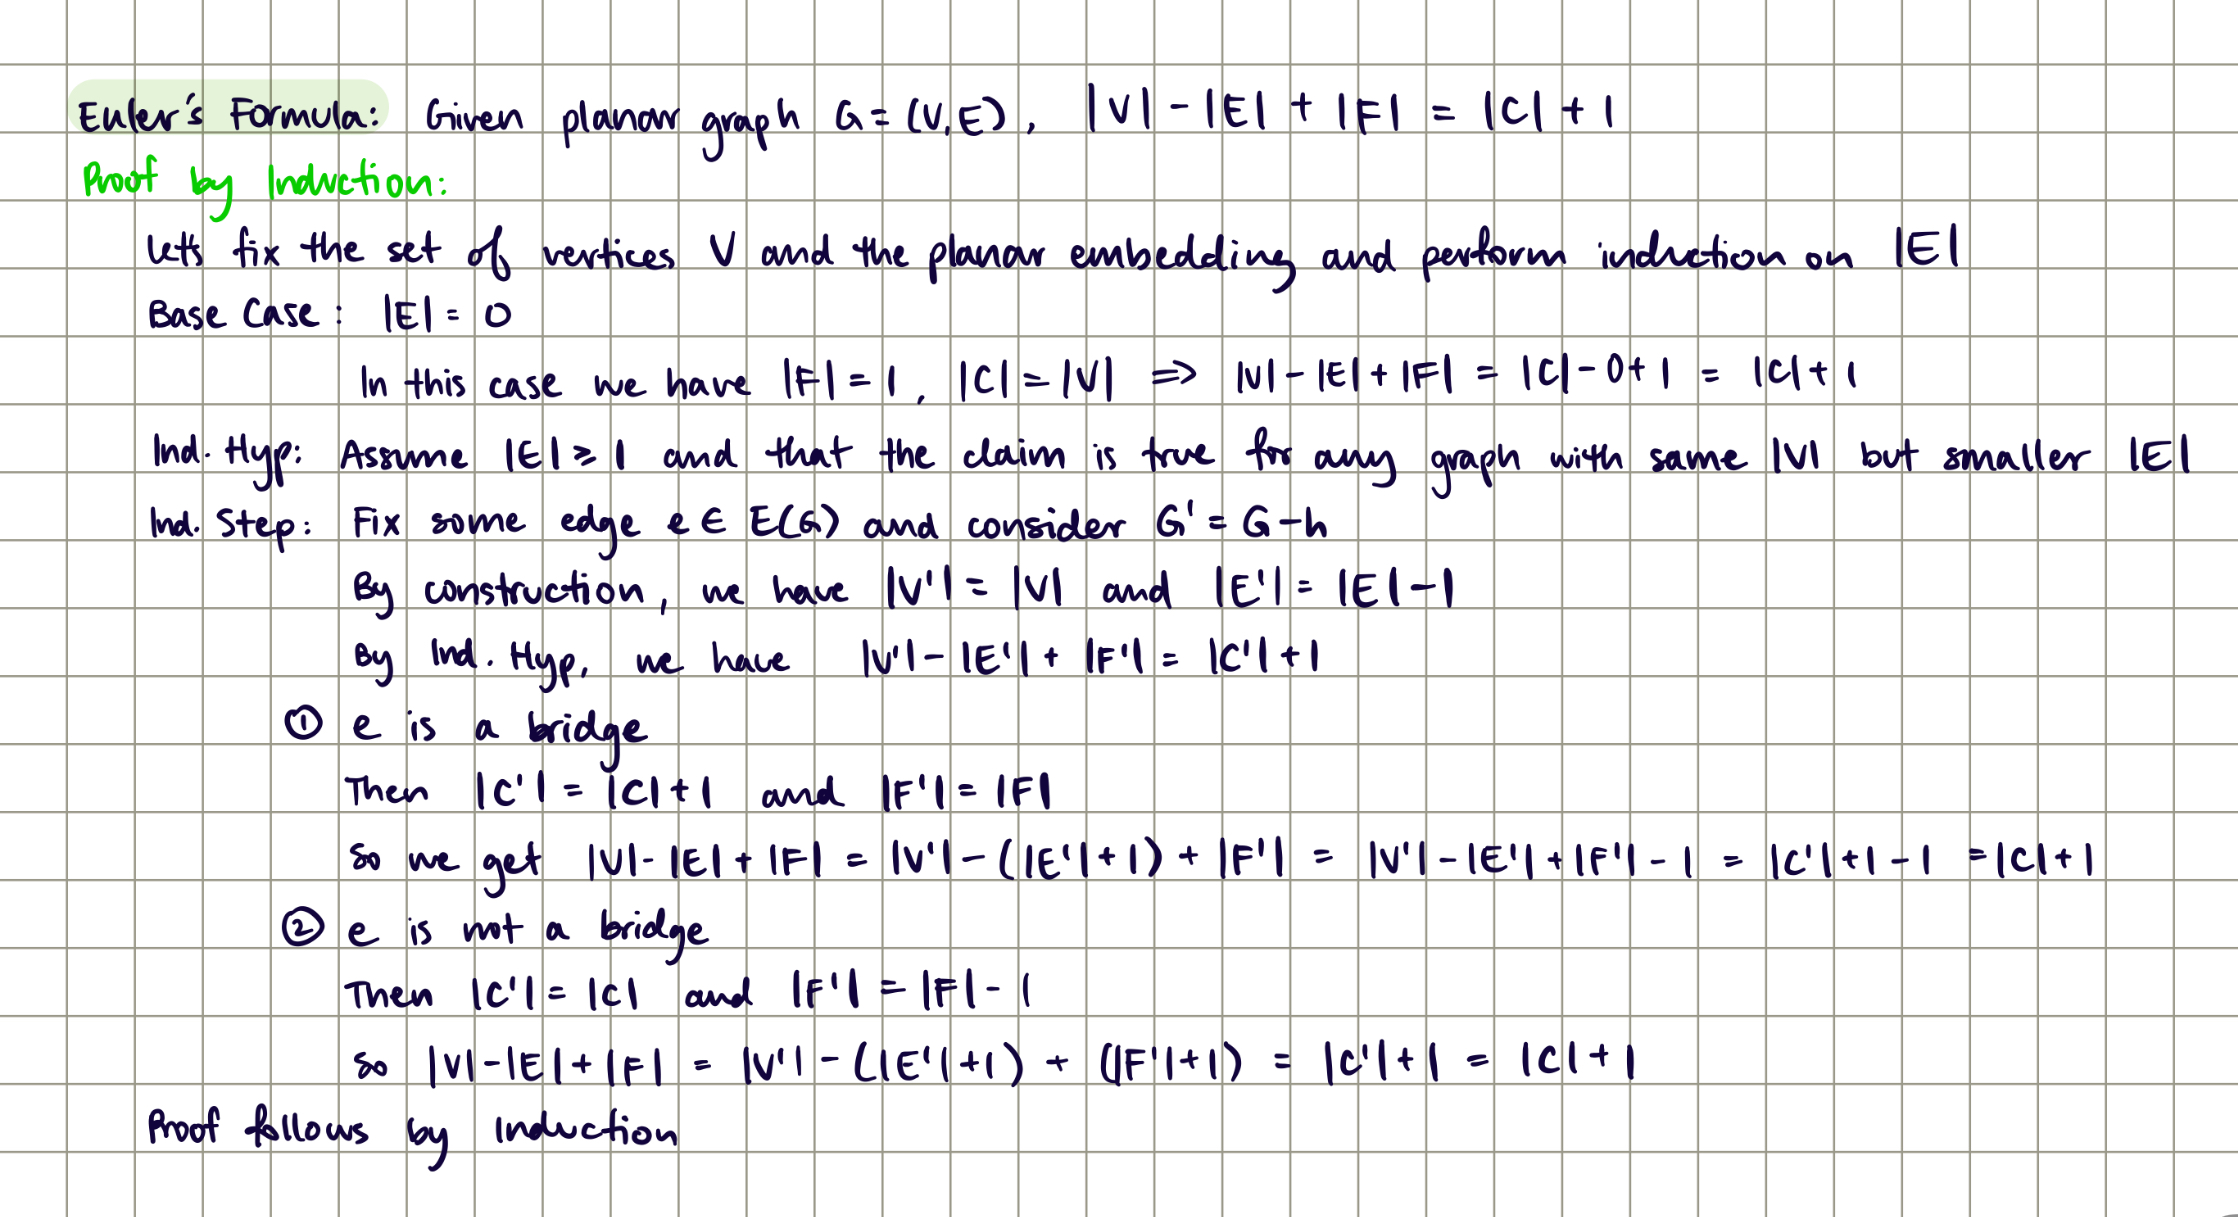 Euler's Formula: Given planar graph G = (V, E), |V| - |E| + |F| = |C| + 1
Proof by Induction:
Lets fix the set of vertices V and the planar embedding and perform induction on |E|
Base Case: |E| = 0
In this case we have |F| = 1, |C| = |V| ⇒ |V| - |E| + |F| = |C| - 0 + 1 = |C| + 1
Ind. Hyp: Assume |E| ≥ 1 and that the claim is true for any graph with same |V| but smaller |E|
Ind. Step: Fix some edge e ∈ E(G) and consider G' = G - h
By construction, we have |V'| = |V| and |E'| = |E| - 1
By Ind. Hyp, we have |V'| - |E'| + |F'| = |C'| + 1
① e is a bridge
Then |C'| = |C| + 1 and |F'| = |F|
So we get |V| - |E| + |F| = |V'| - (|E'| + 1) + |F'| = |V'| - |E'| + |F'| - 1 = |C'| + 1 - 1 = |C| + 1
② e is not a bridge
Then |C'| = |C| and |F'| = |F| - 1
So |V| - |E| + |F| = |V'| - (|E'| + 1) + (|F'| + 1) = |C'| + 1 = |C| + 1
Proof follows by Induction